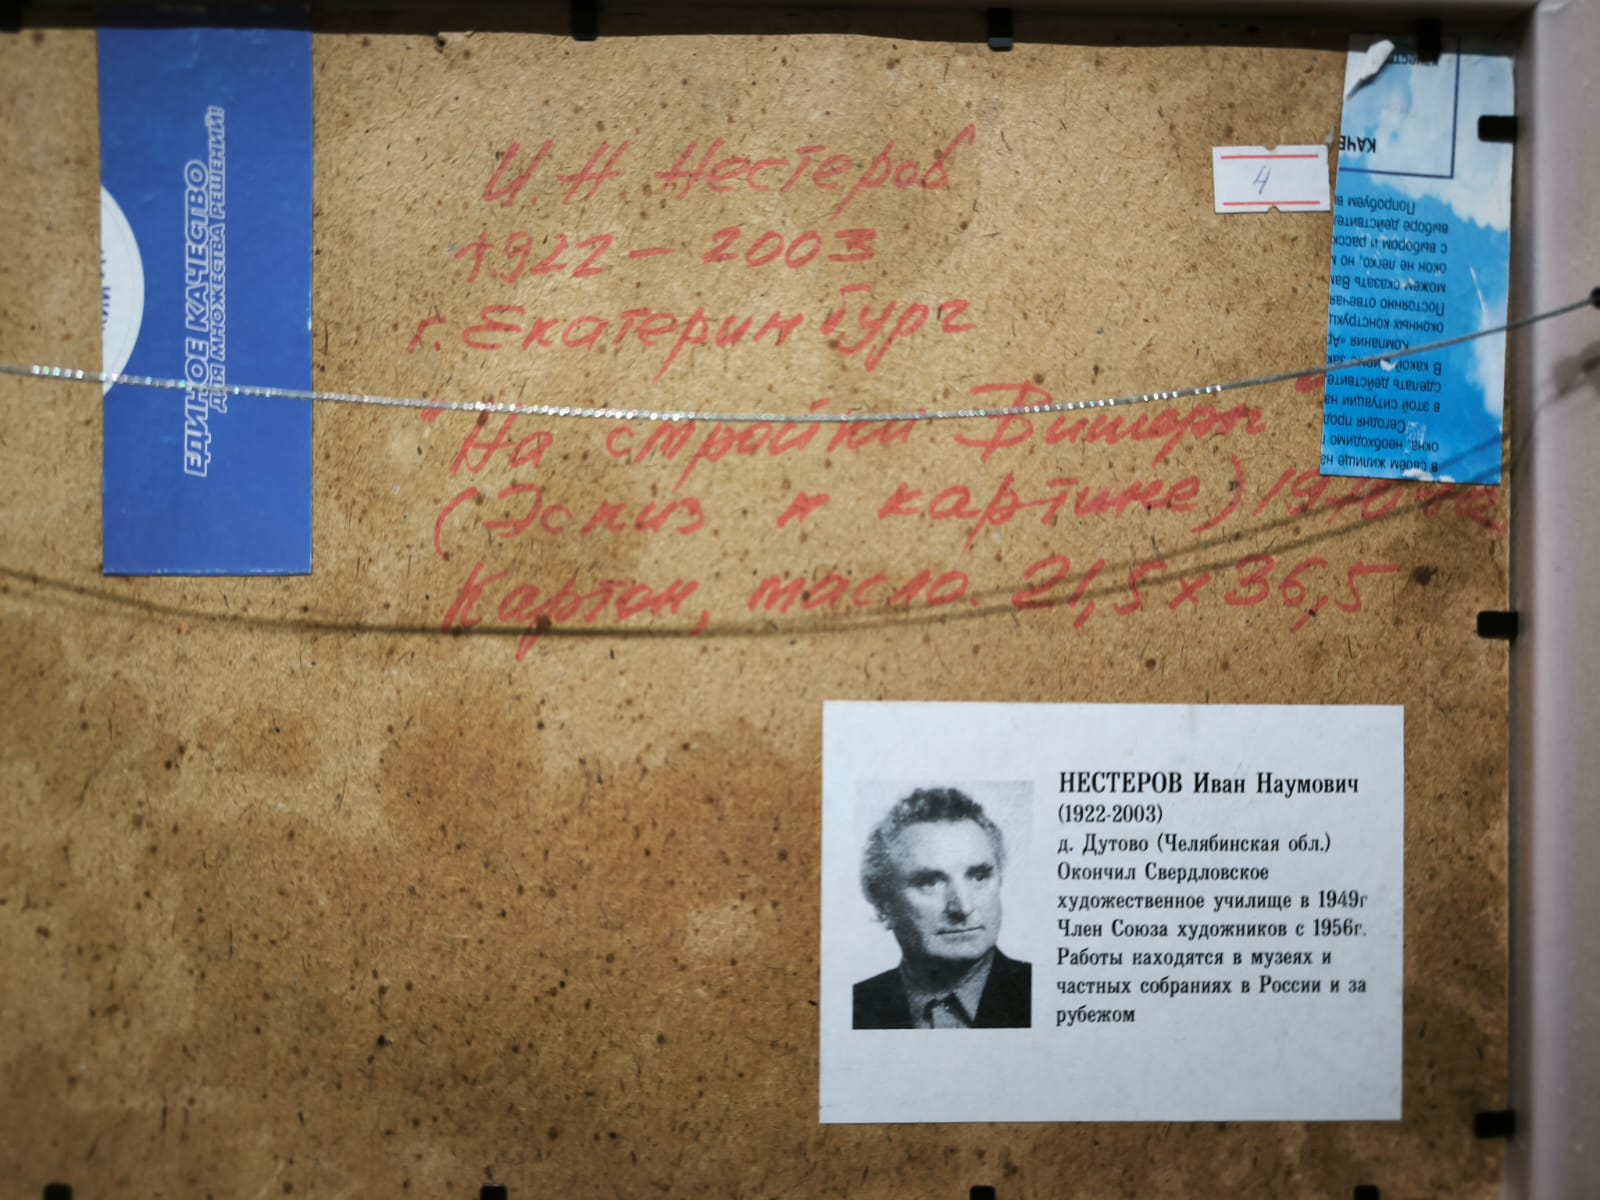 ЕДИНОЕ КАЧЕСТВО
ДЛЯ МНОЖЕСТВА РЕШЕНИЙ!
И. Н. Нестеров
1922 – 2003
г. Екатеринбург
"На стройки Вишеры"
(Эскиз к картине) 1970
Картон, масло. 21,5 х 36,5
4
КАЧЕ
Попробуем
выборе действите
с выбором и расск
окон не легко, но
можем сказать Вам
Постоянно отвечая
оконных конструкц
Компания
В какой
сделать действите
в этой ситуации на
Сегодня прод
окна, необходимо
в своём жилище на
НЕСТЕРОВ Иван Наумович
(1922-2003)
д. Дутово (Челябинская обл.)
Окончил Свердловское
художественное училище в 1949г
Член Союза художников с 1956г.
Работы находятся в музеях и
частных собраниях в России и за
рубежом